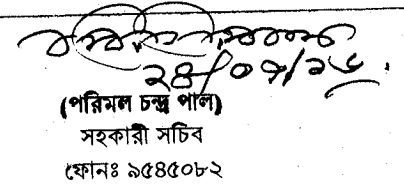 ২৪/০৭/১৬.
(পরিমল চন্দ্র পাল)
সহকারী সচিব
ফোনঃ ৯৫৪৫০৮২